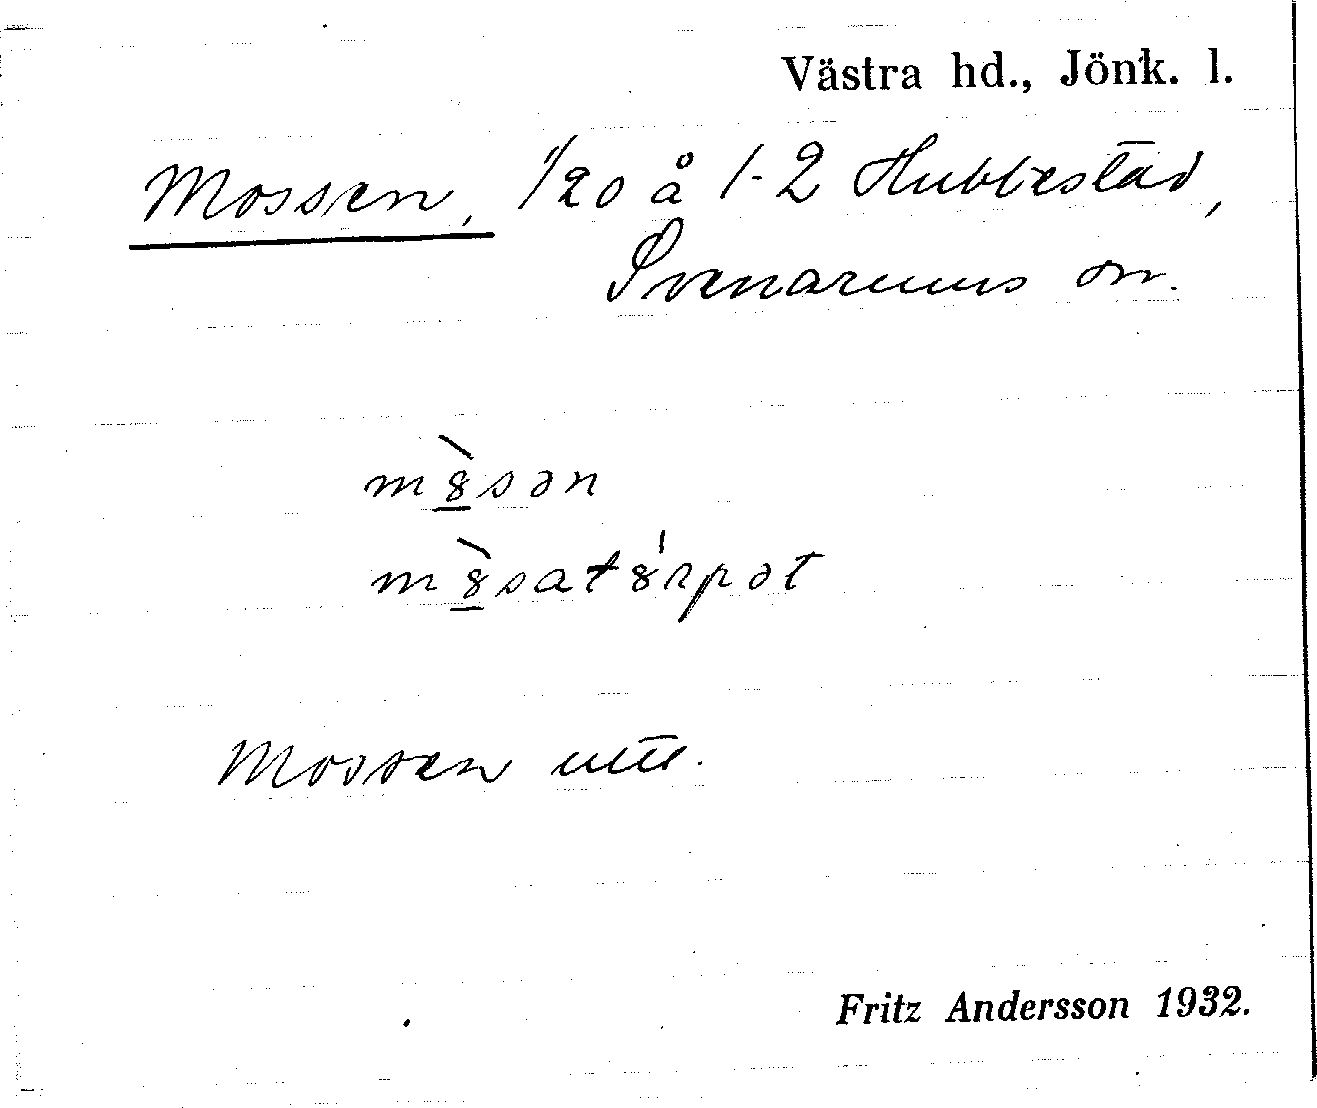 Västra hd., Jönk. l.
Mossen, 1/20 å 1-2 Hubbestad,
Svenarums sn.
m8̲̀sən
m8̲̀sat8́rpət
Mossen utt.
Fritz Andersson 1932.